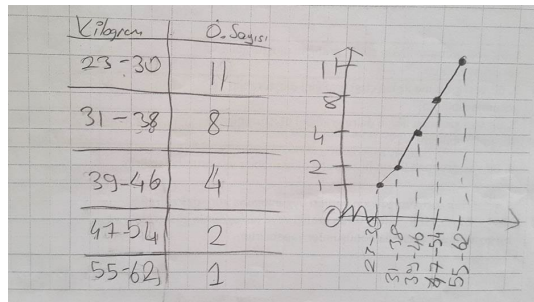 Kilogram Ö. Sayısı
23-30 11
31-38 8
39-46 4
47-54 2
55-62 1
11
8
4
2
1
0
23-30
31-38
39-46
47-54
55-62